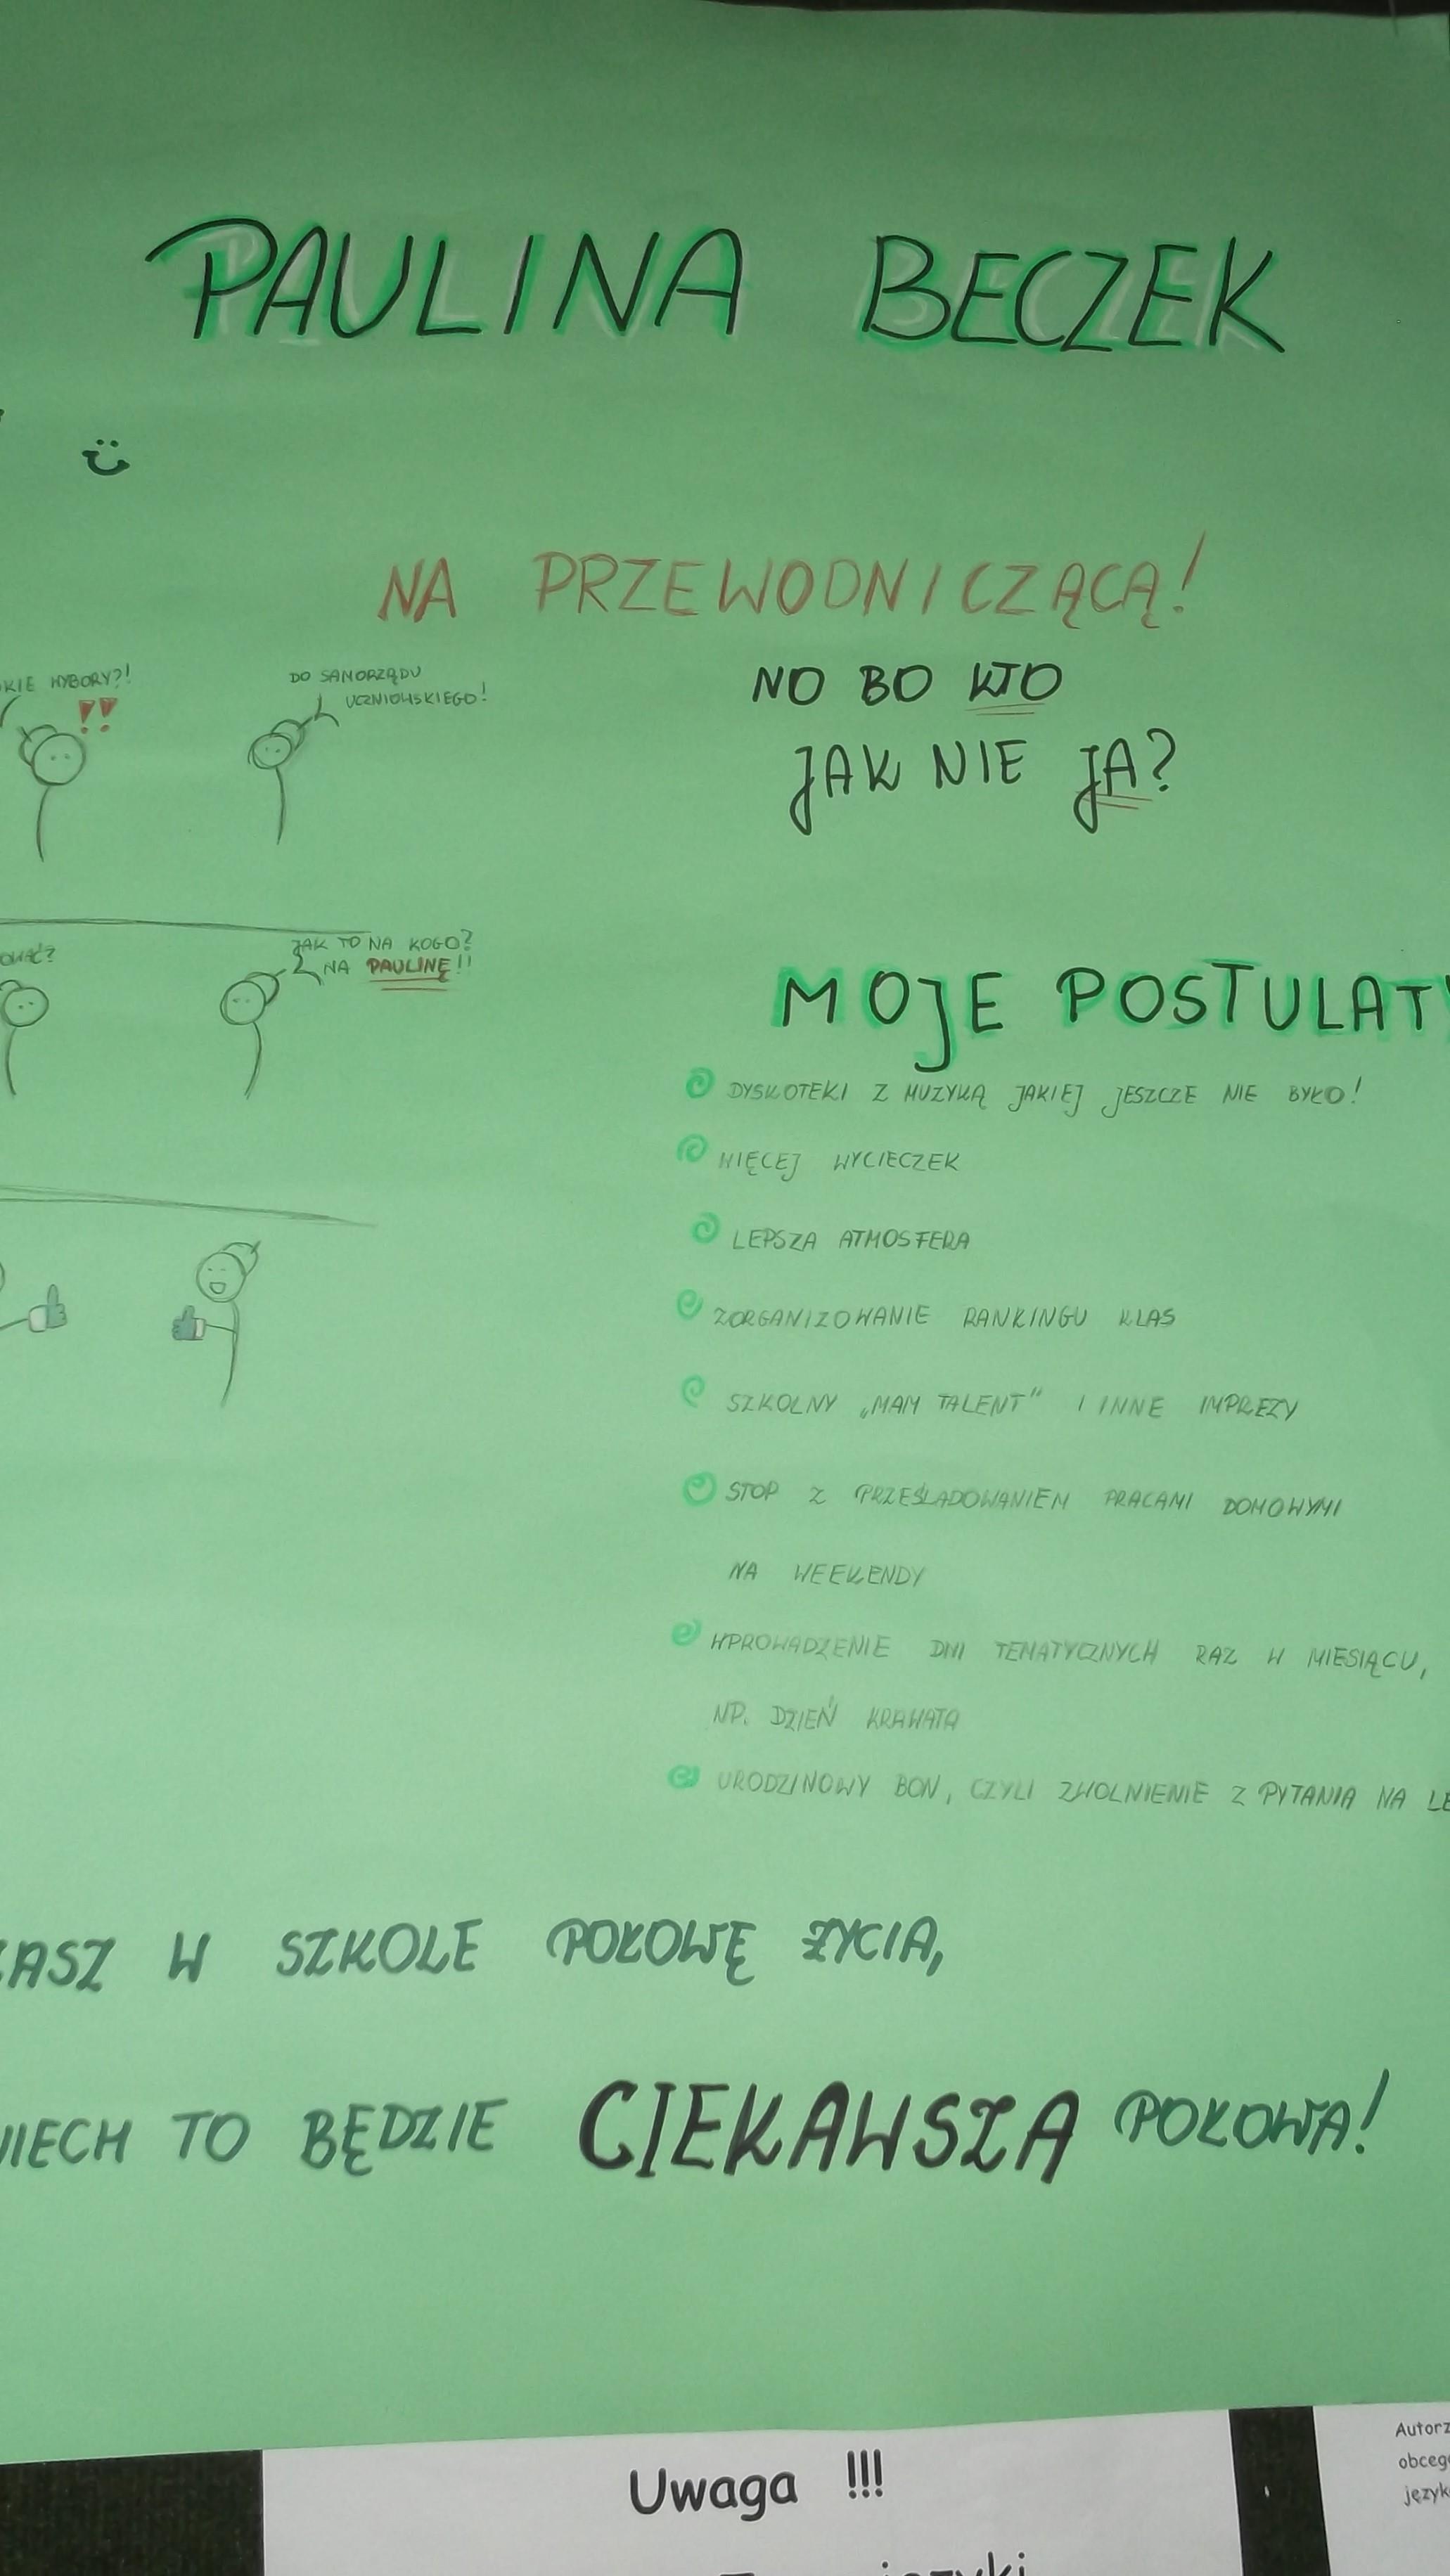 PAULINA BECZEK
NA PRZEWODNICZĄCĄ!
NO BO KTO
JAK NIE JA?
WYBORY?!
DO SAMORZĄDU
UCZNIOWSKIEGO!
JAK TO NA KOGO?
NA PAULINĘ!!
MOJE POSTULATY
DYSKOTEKI Z MUZYKĄ JAKIEJ JESZCZE NIE BYŁO!
WIĘCEJ WYCIECZEK
LEPSZA ATMOSFERA
ZORGANIZOWANIE RANKINGU KLAS
SZKOLNY „MAM TALENT" I INNE IMPREZY
STOP Z PRZEŚLADOWANIEM PRACAMI DOMOWYMI
NA WEEKENDY
WPROWADZENIE DNI TEMATYCZNYCH RAZ W MIESIĄCU,
NP. DZIEŃ KRAWATA
URODZINOWY BON, CZYLI ZWOLNIENIE Z PYTANIA NA
W SZKOLE POŁOWĘ ŻYCIA,
NIECH TO BĘDZIE CIEKAWSZA POŁOWA!
Uwaga !!!